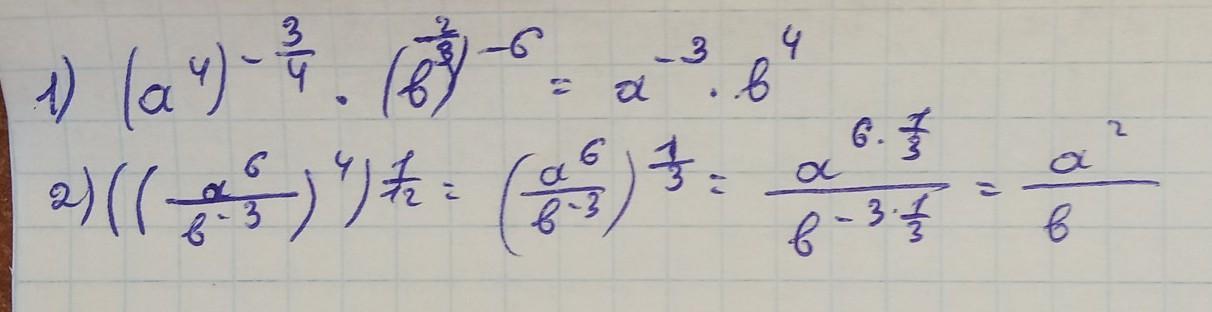 1) (a⁴)^(-3/4) · (b^(-2/3))^(-6) = a^(-3) · b⁴
2) ((a⁶/b^(-3))⁴)^(1/12) = (a⁶/b^(-3))^(1/3) = a^(6·1/3)/b^(-3·1/3) = a²/b